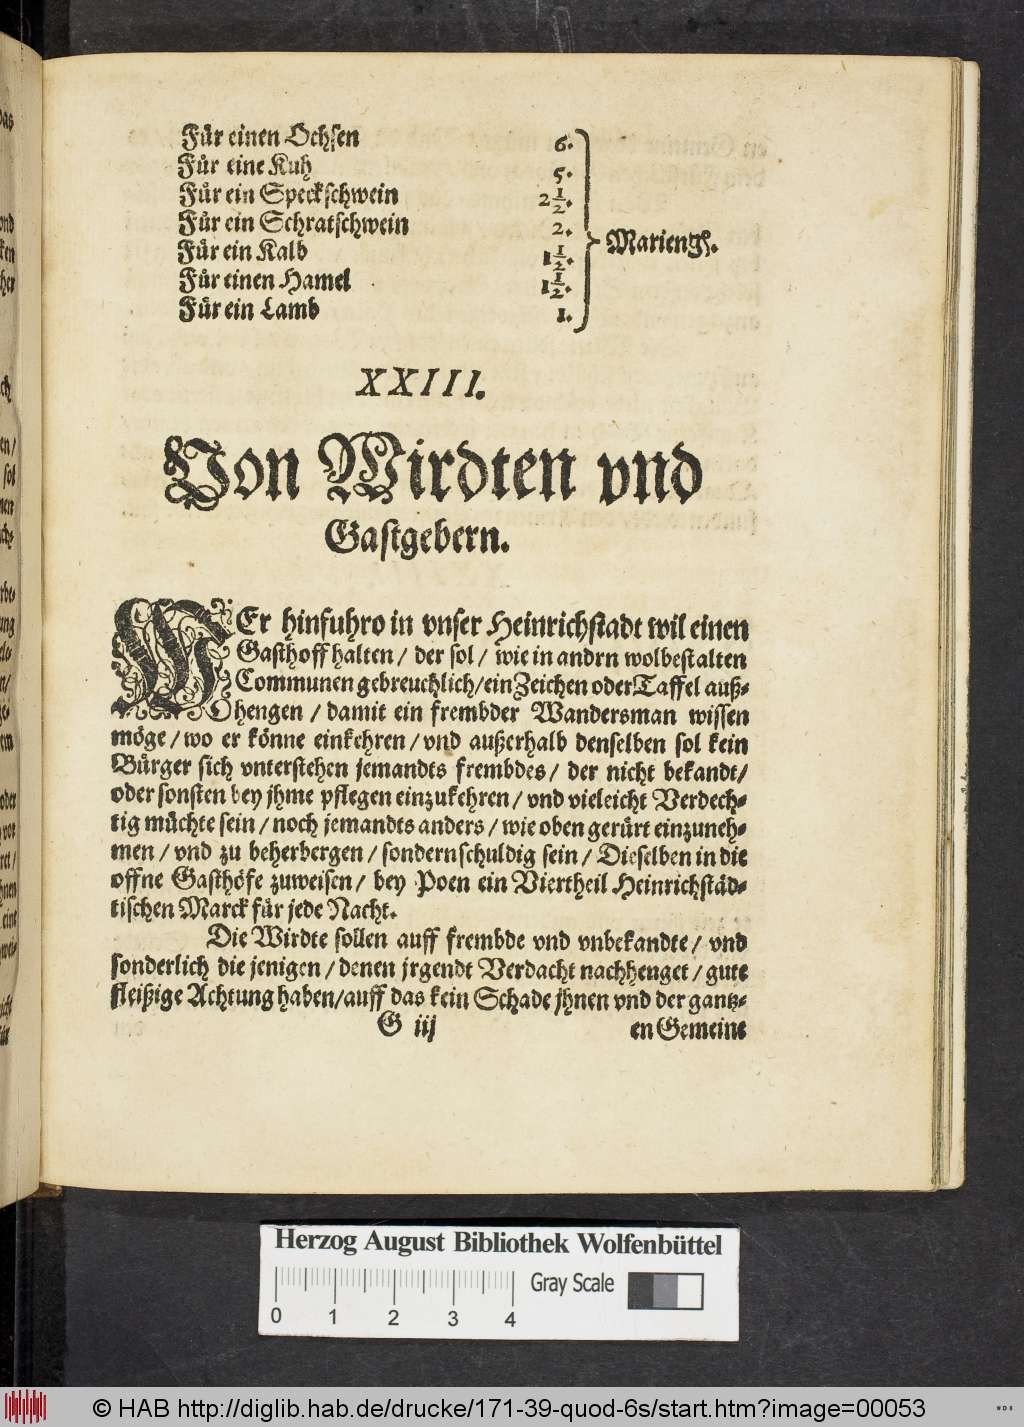 Für einen Ochsen 6.
Für eine Kuh 5.
Für ein Speckschwein 2½.
Für ein Schratschwein 2.
Für ein Kalb 1½.
Für einen Hamel 1½.
Für ein Lamb 1.
Mariengſ.
XXIII.
Von Wirdten vnd
Gastgebern.
WEr hinfuhro in vnser Heinrichstadt wil einen
Gasthoff halten / der sol / wie in andrn wolbestalten
Communen gebreuchlich / ein Zeichen oder Taffel auß-
hengen / damit ein frembder Wandersman wissen
möge / wo er könne einkehren / vnd außerhalb denselben sol kein
Bürger sich vnterstehen jemandts frembdes / der nicht bekandt /
oder sonsten bey jhme pflegen einzukehren / vnd vieleicht Verdech-
tig müchte sein / noch jemandts anders / wie oben gerürt einzuneh-
men / vnd zu beherbergen / sondern schuldig sein / Dieselben in die
offne Gasthöfe zuweisen / bey Poen ein Viertheil Heinrichstäd-
tischen Marck für jede Nacht.
Die Wirdte sollen auff frembde vnd vnbekandte / vnd
sonderlich die jenigen / denen jrgendt Verdacht nachhenget / gute
fleißige Achtung haben / auff das kein Schade jhnen vnd der gantz-
G iij en Gemeine
Herzog August Bibliothek Wolfenbüttel
Gray Scale
0 1 2 3 4
© HAB http://diglib.hab.de/drucke/171-39-quod-6s/start.htm?image=00053